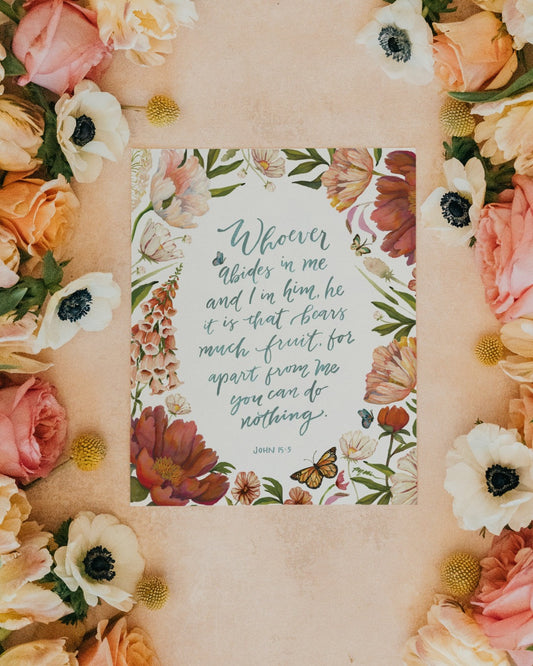 Whoever
abides in me
and I in him, he
it is that bears
much fruit, for
apart from me
you can do
nothing.
JOHN 15:5